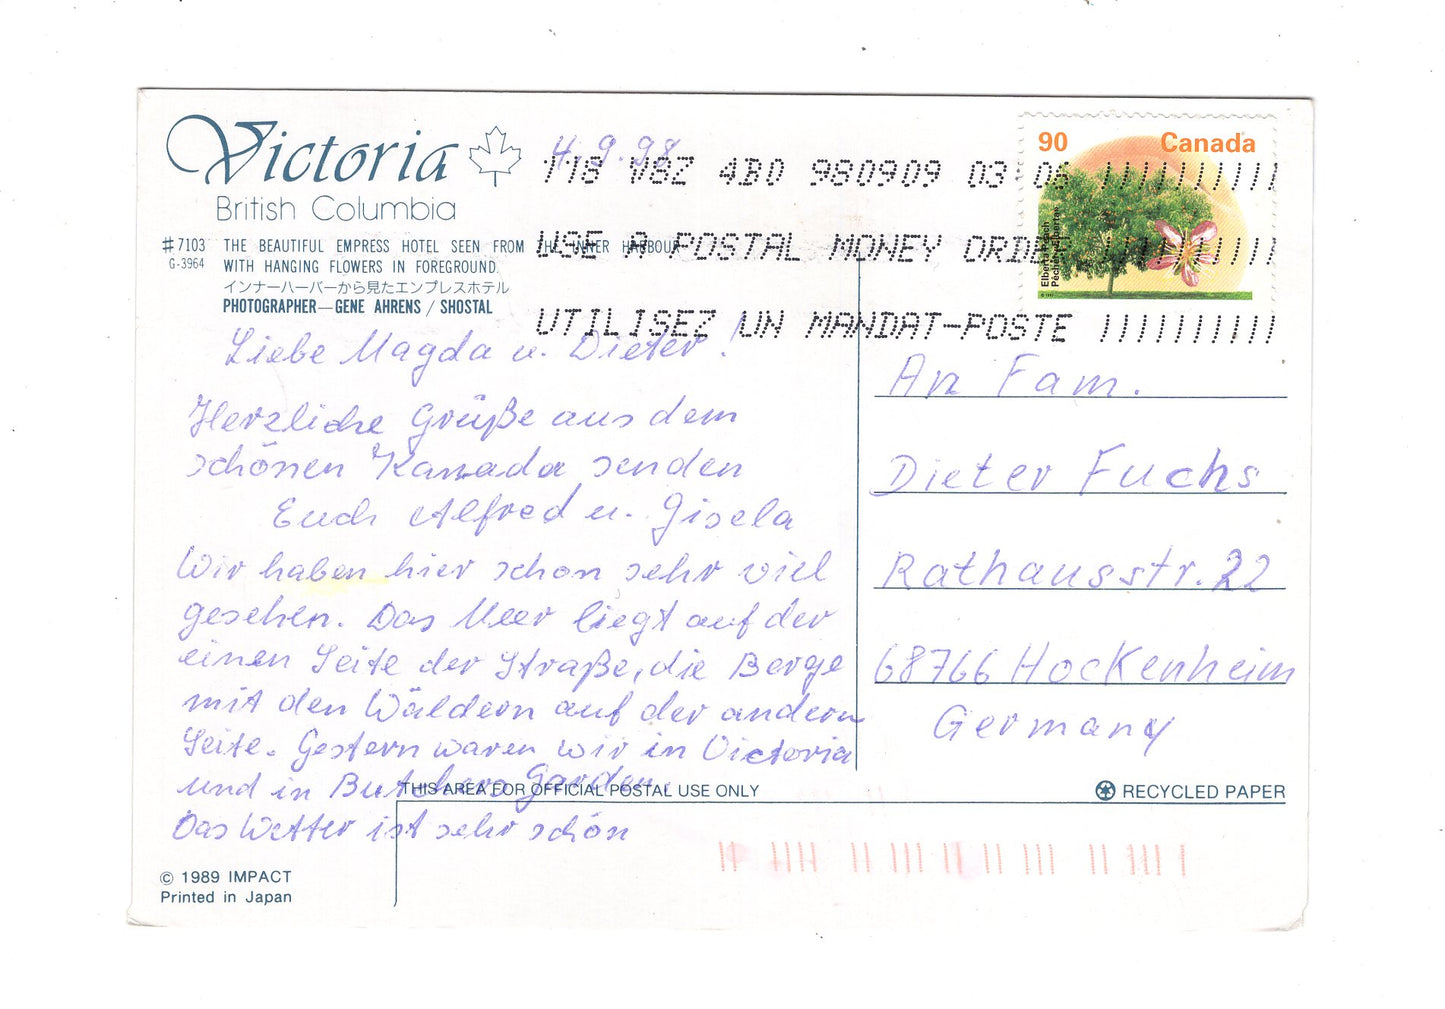 Victoria
British Columbia
#7103 THE BEAUTIFUL EMPRESS HOTEL SEEN FROM THE INNER HARBOUR
G-3964 WITH HANGING FLOWERS IN FOREGROUND.
インナーハーバーから見たエンプレスホテル
PHOTOGRAPHER—GENE AHRENS / SHOSTAL
4.9.98
V8Z 4B0 980909 03
USE A POSTAL MONEY ORDER
UTILISEZ UN MANDAT-POSTE
90 Canada
Elberta Peach
Pêcher Elberta
Liebe Magda u. Dieter!
Herzliche Grüße aus dem
schönen Kanada senden
Euch Alfred u. Gisela
Wir haben hier schon sehr viel
gesehen. Das Meer liegt auf der
einen Seite der Straße, die Berge
mit den Wäldern auf der andern
Seite. Gestern waren wir in Victoria
und in Butchers Garden.
Das Wetter ist sehr schön
An Fam.
Dieter Fuchs
Rathausstr. 22
68766 Hockenheim
Germany
THIS AREA FOR OFFICIAL POSTAL USE ONLY
RECYCLED PAPER
© 1989 IMPACT
Printed in Japan